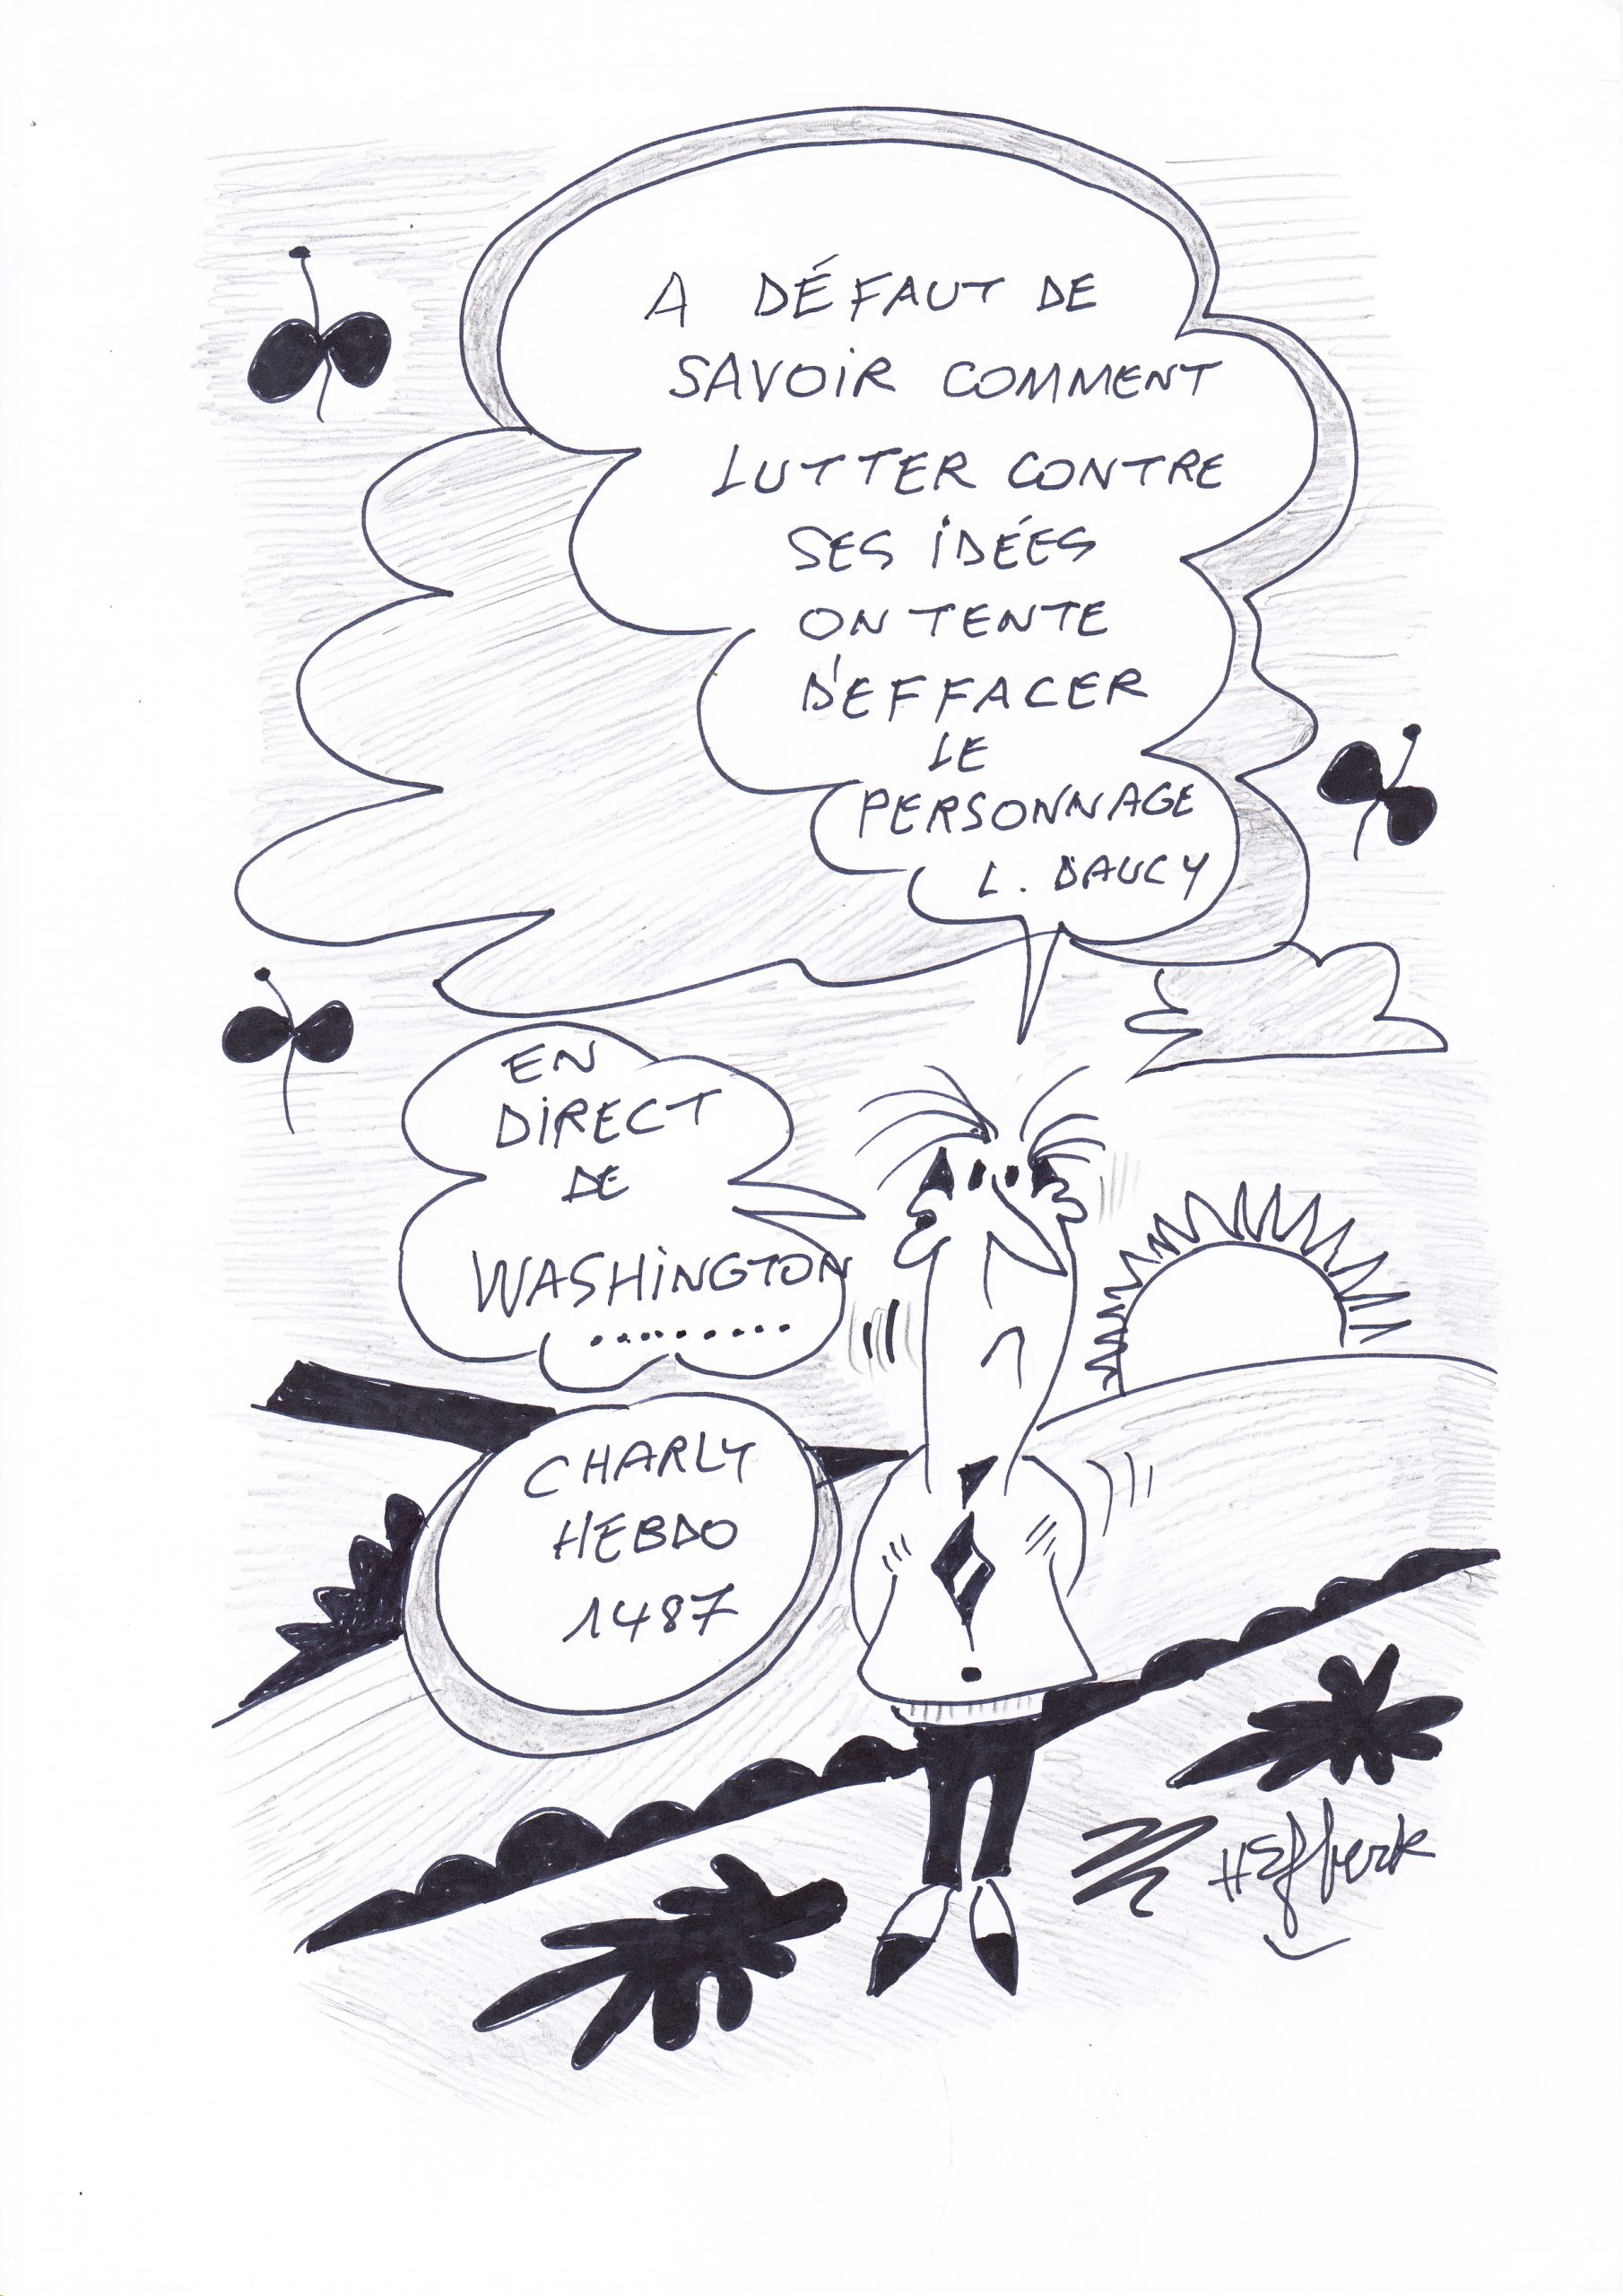 A DÉFAUT DE
SAVOIR COMMENT
LUTTER CONTRE
SES IDÉES
ON TENTE
D'EFFACER
LE
PERSONNAGE
L. DAUCY
EN
DIRECT
DE
WASHINGTON
.........
CHARLY
HEBDO
1487